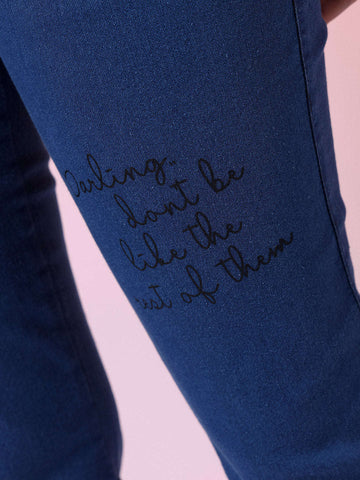 Darling..
dont be
like the
rest of them